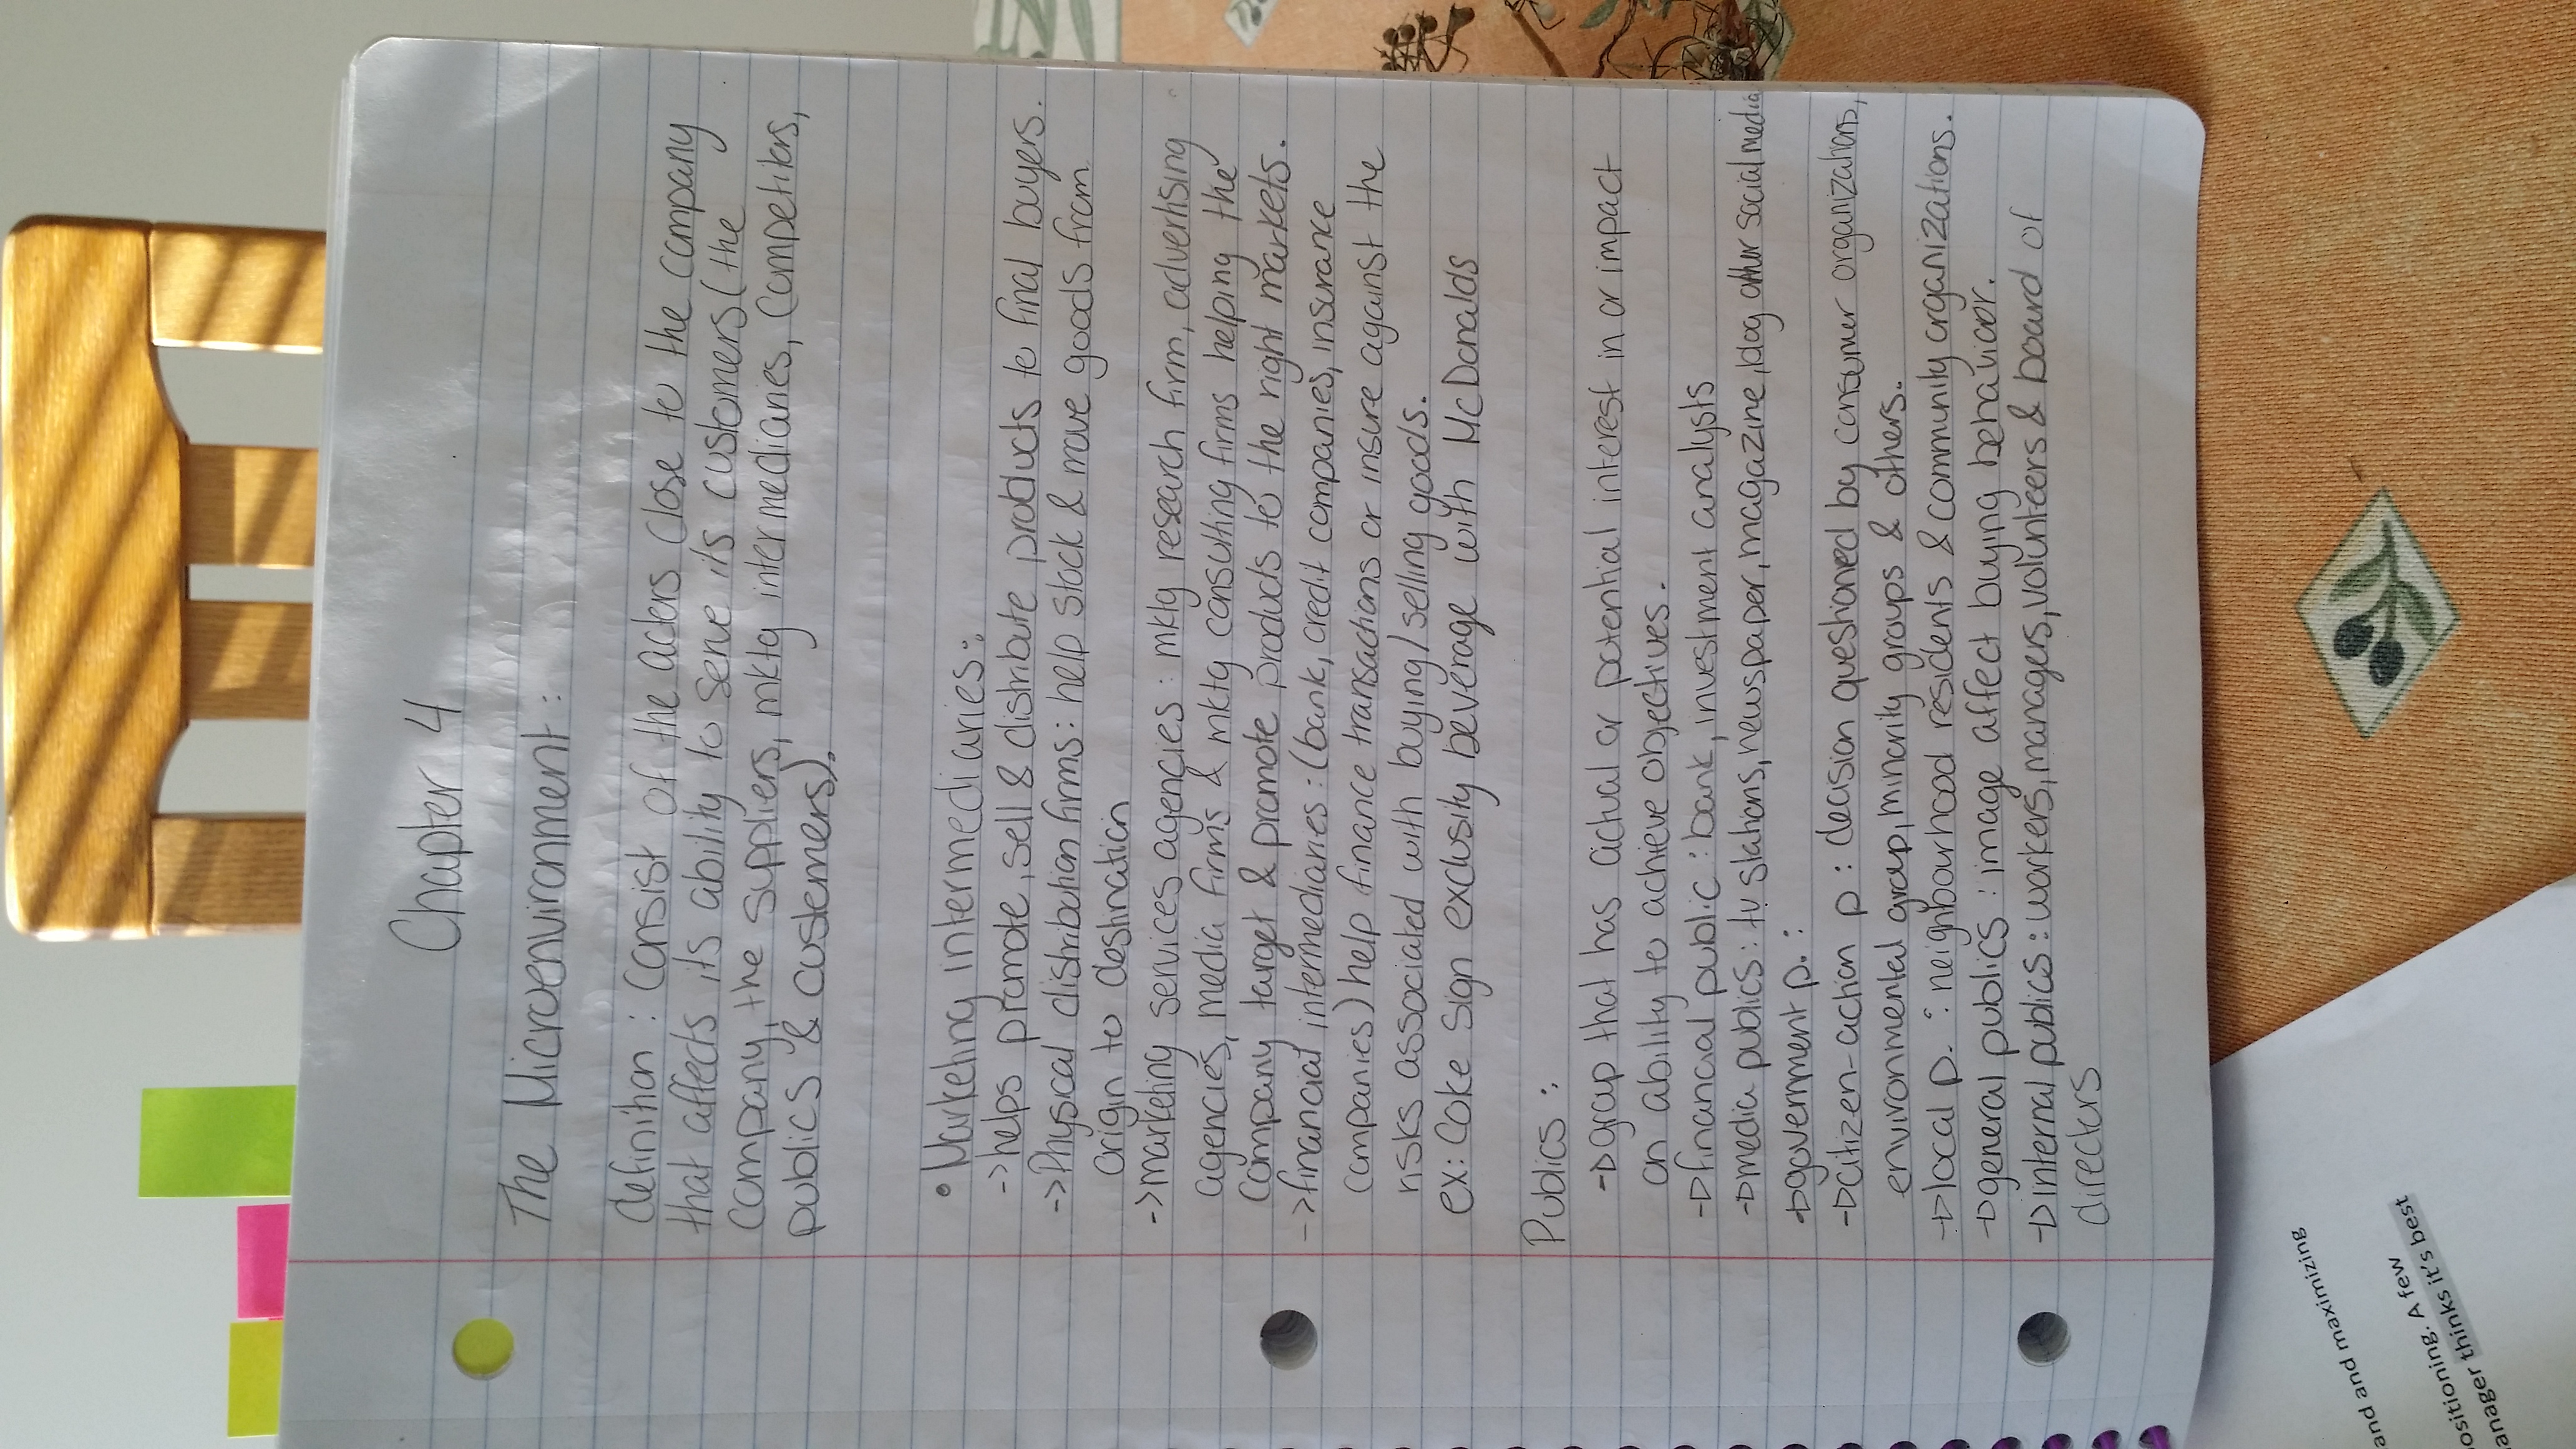 Chapter 4
The Microenvironment :
definition : consist of the actors close to the company
that affects its ability to serve its customers (the
company, the suppliers, mktg intermediaries, competitors,
publics & customers).
• Marketing intermediaries :
-> helps promote, sell & distribute products to final buyers.
-> Physical distribution firms : help stock & move goods from
origin to destination
-> marketing services agencies : mktg research firm, advertising
agencies, media firms & mktg consulting firms helping the
company target & promote products to the right markets.
-> financial intermediaries : (bank, credit companies, insurance
companies) help finance transactions or insure against the
risks associated with buying/selling goods.
ex: Coke sign exclusity beverage with McDonalds
Publics :
-> group that has actual or potential interest in or impact
on ability to achieve objectives.
-> financial public : bank, investment analysts
-> media publics : tv stations, newspaper, magazine, blog other social media
-> government p. :
-> citizen-action p : decision questioned by consumer organizations,
environmental group, minority groups & others.
-> local p. : neighbourhood residents & community organizations.
-> general publics : image affect buying behavior.
-> internal publics : workers, managers, volunteers & board of
directors
and and maximizing
ositioning. A few
anager thinks it's best